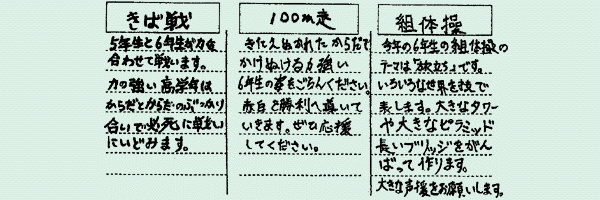 きば戦
5年生と6年生が力を
合わせて戦います。
力の強い高学年は
からだとからだのぶつかり
合いで必死に戦い
にいどみます。
100m走
きたえぬかれたからだで
かけぬける力強い
6年生の姿をごらんください。
赤白を勝利へ導いて
いきます。ぜひ応援
してください。
組体操
今年の6年生の組体操の
テーマは「旅立ち」です。
いろいろな世界を技で
表します。大きなタワー
や大きなピラミッド
長いブリッジをがん
ばって作ります。
大きな声援をお願いします。